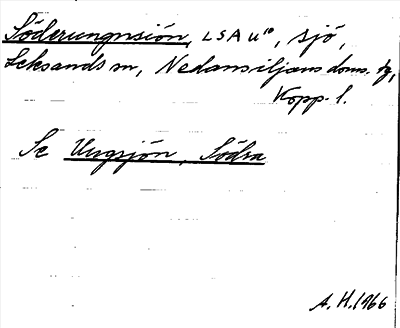 Söderungnsiön, LSA U¹⁰, sjö,
Leksands sn, Nedansiljans doms. tg,
Kopp. l.
Se Ungsjön, Södra
A. H. 1966